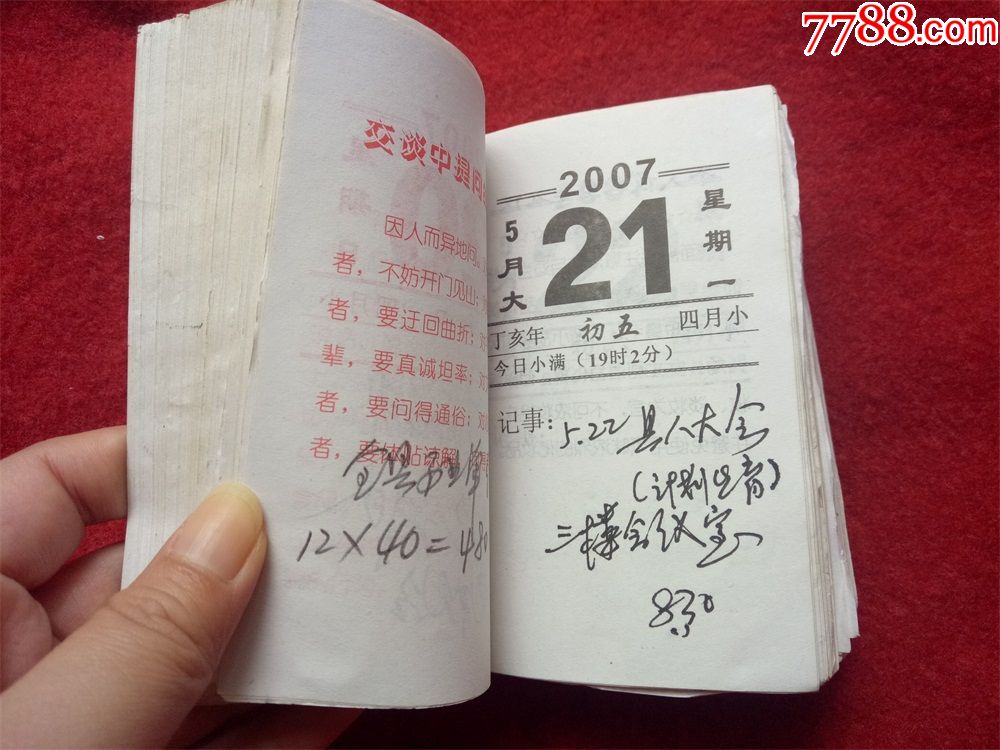 7788.com
交谈中提问
因人而异地问。
者，不妨开门见山；
者，要迂回曲折；对
辈，要真诚坦率；对
者，要问得通俗；对
者，要体贴谅解，
12×40=480
2007
5月大
21
星期一
丁亥年 初五 四月小
今日小满（19时2分）
记事：5.22 县人大会
（计划生育）
三楼会议室
8.30